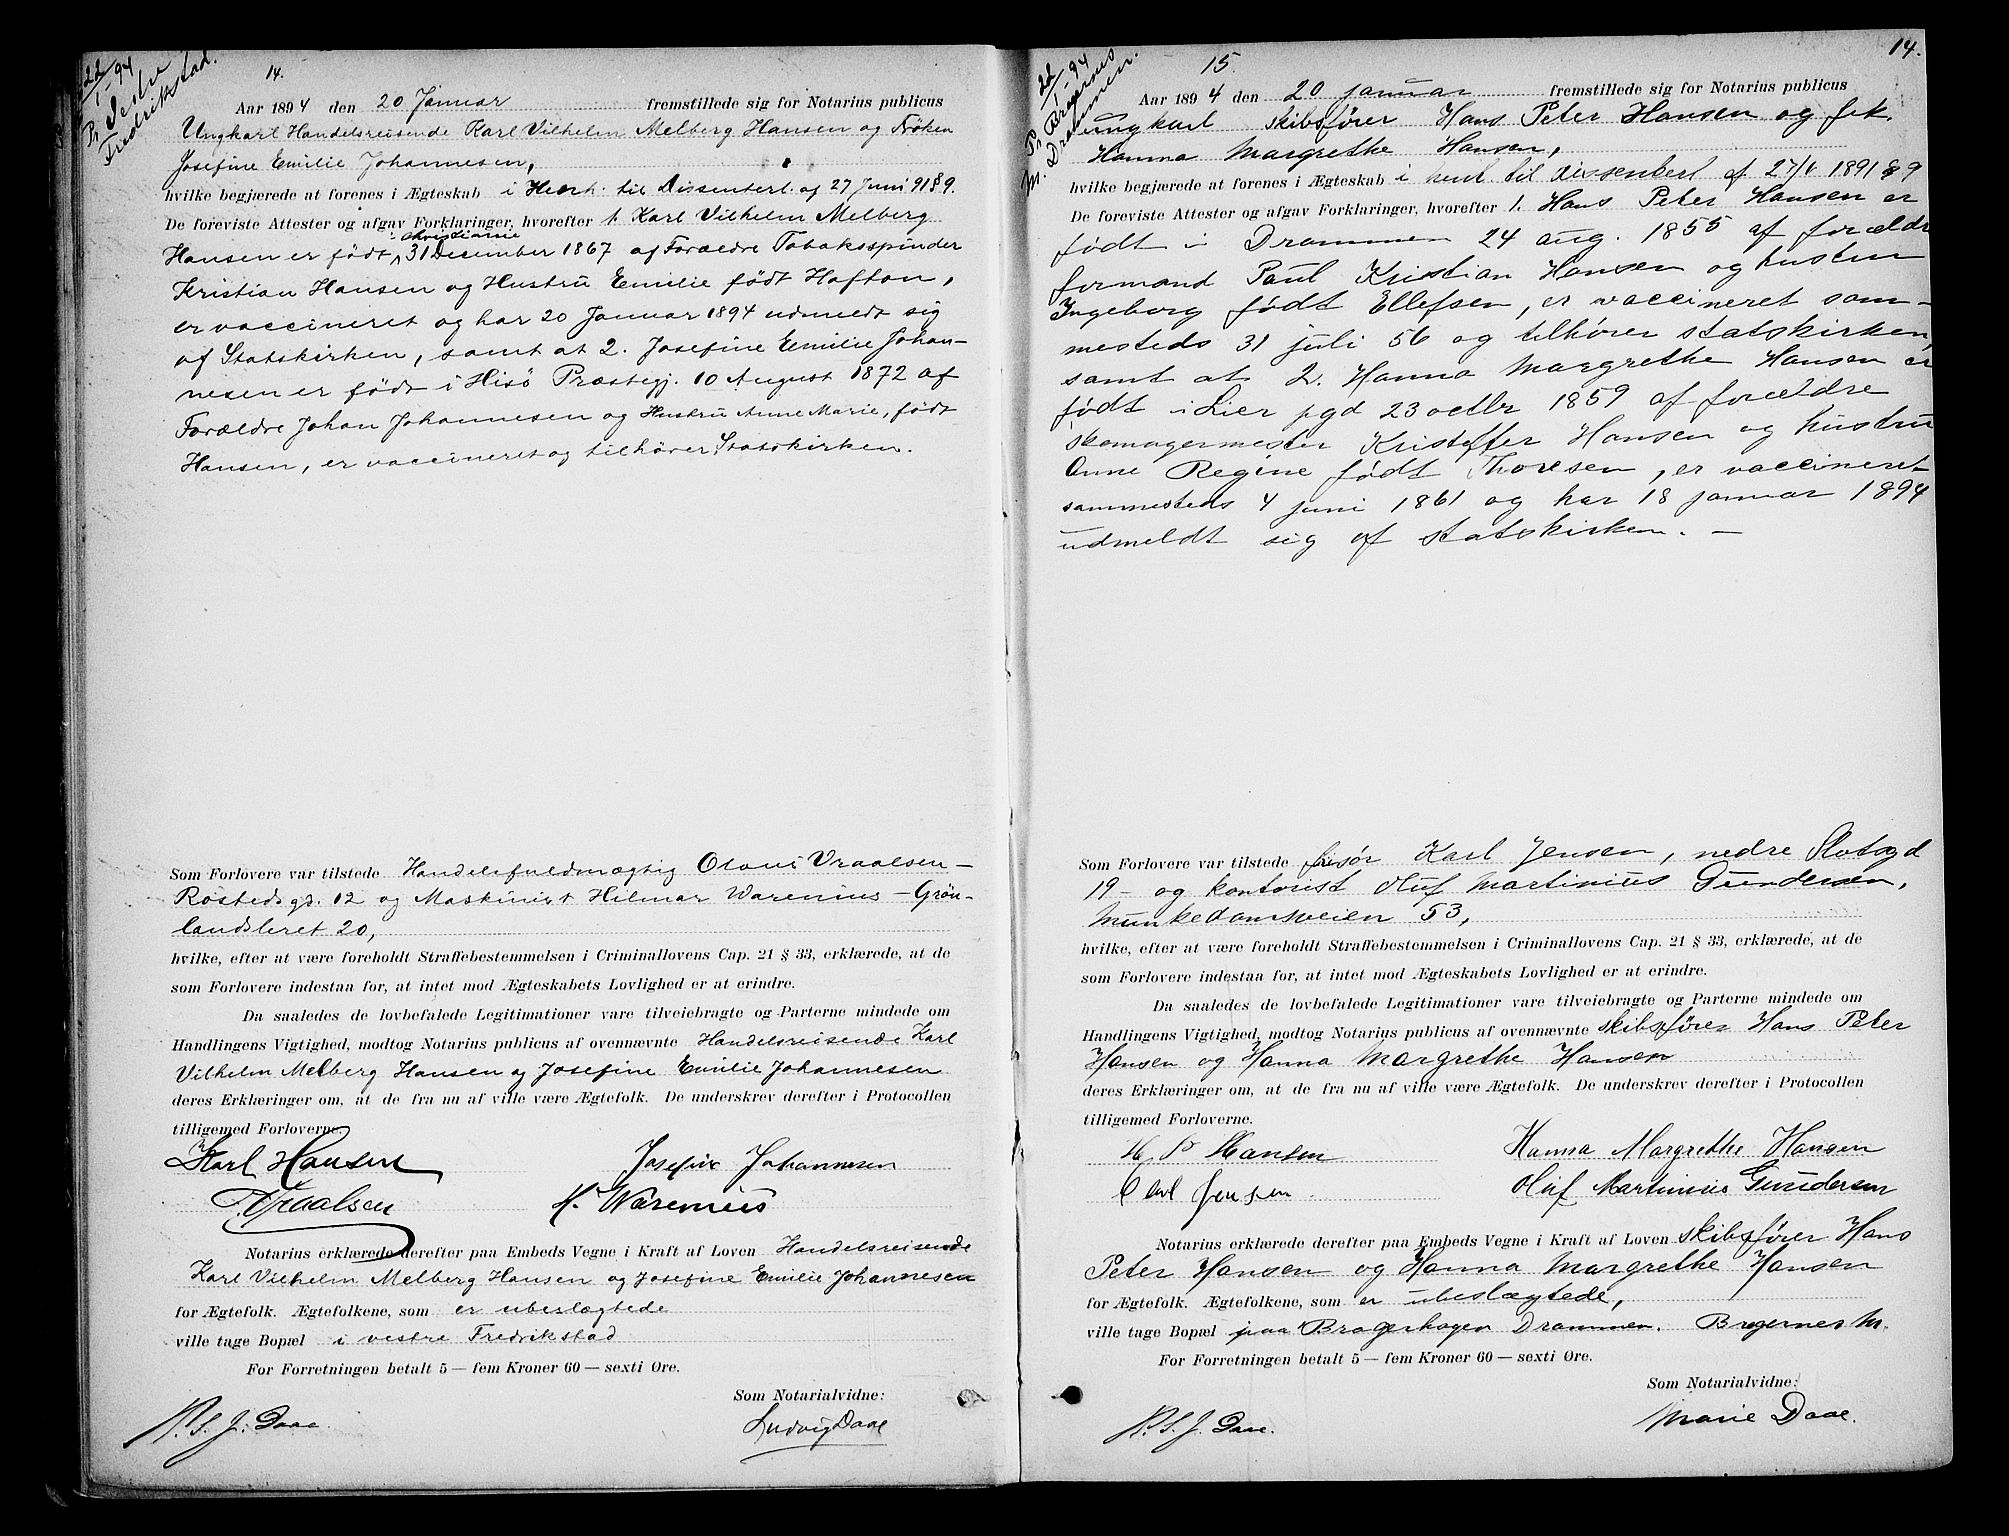 22/1-94
Pr. Vestre
Fredrikstad.
14.
Aar 1894 den 20 Januar fremstillede sig for Notarius publicus
Ungkarl Handelsreisende Karl Vilhelm Melberg Hansen og Frøken
Josefine Emilie Johannesen,
hvilke begjærede at forenes i Ægteskab i Henh. til Dissenterl. af 27 Juni 91 § 9.
De foreviste Attester og afgav Forklaringer, hvorefter 1. Karl Vilhelm Melberg
i Christiania
Hansen er født 31 December 1867 af Forældre Tobaksspinder
Kristian Hansen og Hustru Emilie født Hafton,
er vaccineret og har 20 Januar 1894 udmeldt sig
af Statskirken, samt at 2. Josefine Emilie Johan-
nesen er født i Hisö Præstegj. 10 August 1872 af
Forældre Johan Johannesen og Hustru Anne Marie, født
Hansen, er vaccineret og tilhører Statskirken.
Som Forlovere var tilstede Handelsfuldmægtig Olaus Vraalsen -
Røstedsgd. 12 og Maskinist Hilmar Warenius - Grøn-
landsleret 20,
hvilke, efter at være foreholdt Straffebestemmelsen i Criminallovens Cap. 21 § 33, erklærede, at de
som Forlovere indestaa for, at intet mod Ægteskabets Lovlighed er at erindre.
Da saaledes de lovbefalede Legitimationer vare tilveiebragte og Parterne mindede om
Handlingens Vigtighed, modtog Notarius publicus af ovennævnte Handelsreisende Karl
Vilhelm Melberg Hansen og Josefine Emilie Johannesen
deres Erklæringer om, at de fra nu af ville være Ægtefolk. De underskrev derefter i Protocollen
tilligemed Forloverne.
Karl Hansen Josefine Johannesen
Vraalsen H. Warenius
Notarius erklærede derefter paa Embeds Vegne i Kraft af Loven Handelsreisende
Karl Vilhelm Melberg Hansen og Josefine Emilie Johannesen
for Ægtefolk. Ægtefolkene, som er ubeslægtede
ville tage Bopæl i vestre Fredrikstad
For Forretningen betalt 5 — fem Kroner 60 — sexti Øre.
Som Notarialvidne:
N. S. J. Daae Ludvig Daae
14.
22/1-94
Pr. Bragernes
M. Drammen.
15.
Aar 1894 den 20 januar fremstillede sig for Notarius publicus
ungkarl skibsfører Hans Peter Hansen og frk.
Hanna Margrethe Hansen,
hvilke begjærede at forenes i Ægteskab i henh. til dissenterl af 27/6 1891 § 9
De foreviste Attester og afgav Forklaringer, hvorefter 1. Hans Peter Hansen er
født i Drammen 24 aug. 1855 af forældre
formand Paul Kristian Hansen og hustru
Ingeborg født Ellefsen, er vaccineret sam-
mesteds 31 juli 56 og tilhører statskirken,
samt at 2. Hanna Margrethe Hansen er
født i Lier pgd 23 octbr 1859 af forældre
skomagermester Kristoffer Hansen og hustru
Anne Regine født Thoresen, er vaccineret
sammesteds 4 juni 1861 og har 18 januar 1894
udmeldt sig af statskirken. -
Som Forlovere var tilstede frisør Karl Jensen, nedre Slotsgd
19 - og kontorist Oluf Martinius Gundersen,
Munkedamsveien 53,
hvilke, efter at være foreholdt Straffebestemmelsen i Criminallovens Cap. 21 § 33, erklærede, at de
som Forlovere indestaa for, at intet mod Ægteskabets Lovlighed er at erindre.
Da saaledes de lovbefalede Legitimationer vare tilveiebragte og Parterne mindede om
Handlingens Vigtighed, modtog Notarius publicus af ovennævnte skibsfører Hans Peter
Hansen og Hanna Margrethe Hansen
deres Erklæringer om, at de fra nu af ville være Ægtefolk. De underskrev derefter i Protocollen
tilligemed Forloverne.
H. P. Hansen Hanna Margrethe Hansen
Carl Jensen. Oluf Martinius Gundersen
Notarius erklærede derefter paa Embeds Vegne i Kraft af Loven skibsfører Hans
Peter Hansen og Hanna Margrethe Hansen
for Ægtefolk. Ægtefolkene, som er ubeslægtede,
ville tage Bopæl paa Bragerhagen Drammen. Bragernes M.
For Forretningen betalt 5 — fem Kroner 60 — sexti Øre.
Som Notarialvidne:
N. S. J. Daae. Marie Daae.